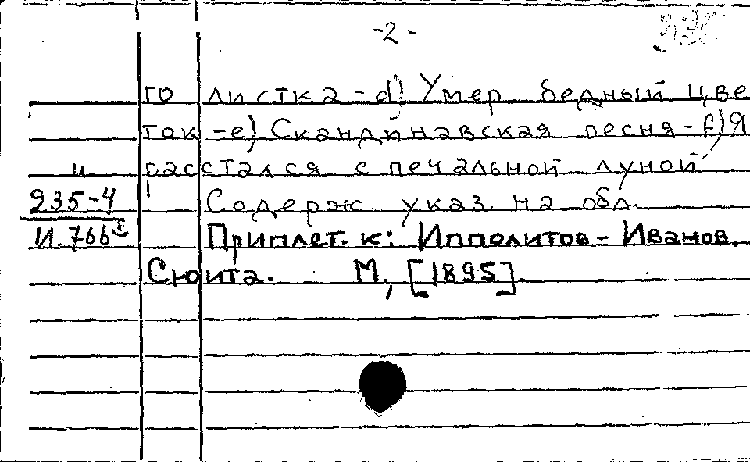 -2-
го листка-d) Умер бедный цве
ток-e) Скандинавская песня-f) Я
расстался с печальной луной
Содерж указ. на обл.
и
235-4
И 766
Приплет. к: Ипполитов-Иванов.
Сюита. М., [1895].